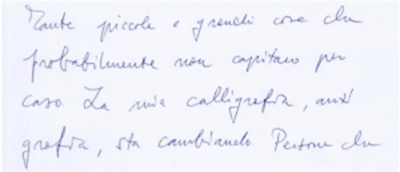 Tante piccole e grandi cose che
probabilmente non capitano per
caso. La mia calligrafia, anzi
grafia, sta cambiando. Persone che